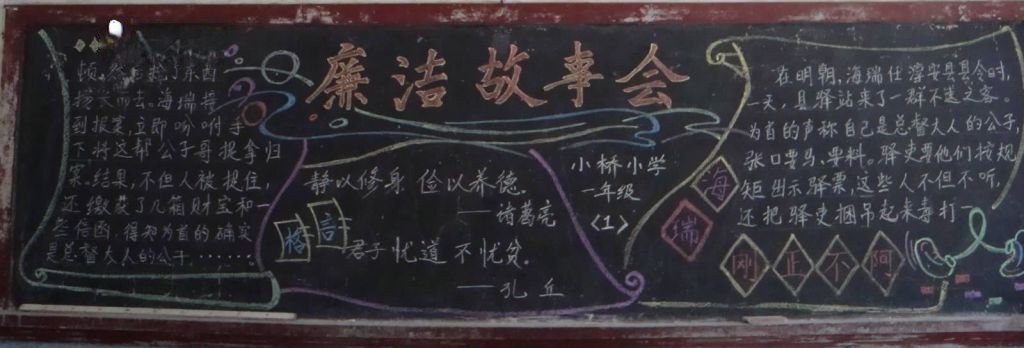 廉洁故事会
在明朝,海瑞任淳安县县令时,
一天,县驿站来了一群不速之客。
为首的声称自己是总督大人的公子,
张口要马、要料。驿吏要他们按规
矩出示驿票,这些人不但不听,
还把驿吏捆吊起来毒打一
顿,然后抢了东西
扬长而去。海瑞接
到报案,立即吩咐手
下将这帮公子哥捉拿归
案。结果,不但人被捉住,
还缴获了几箱财宝和一
些信函,得知为首的确实
是总督大人的公子……
海
瑞
刚正不阿
格言
静以修身 俭以养德。
——诸葛亮
君子忧道 不忧贫。
——孔丘
小桥小学
一年级
<1>